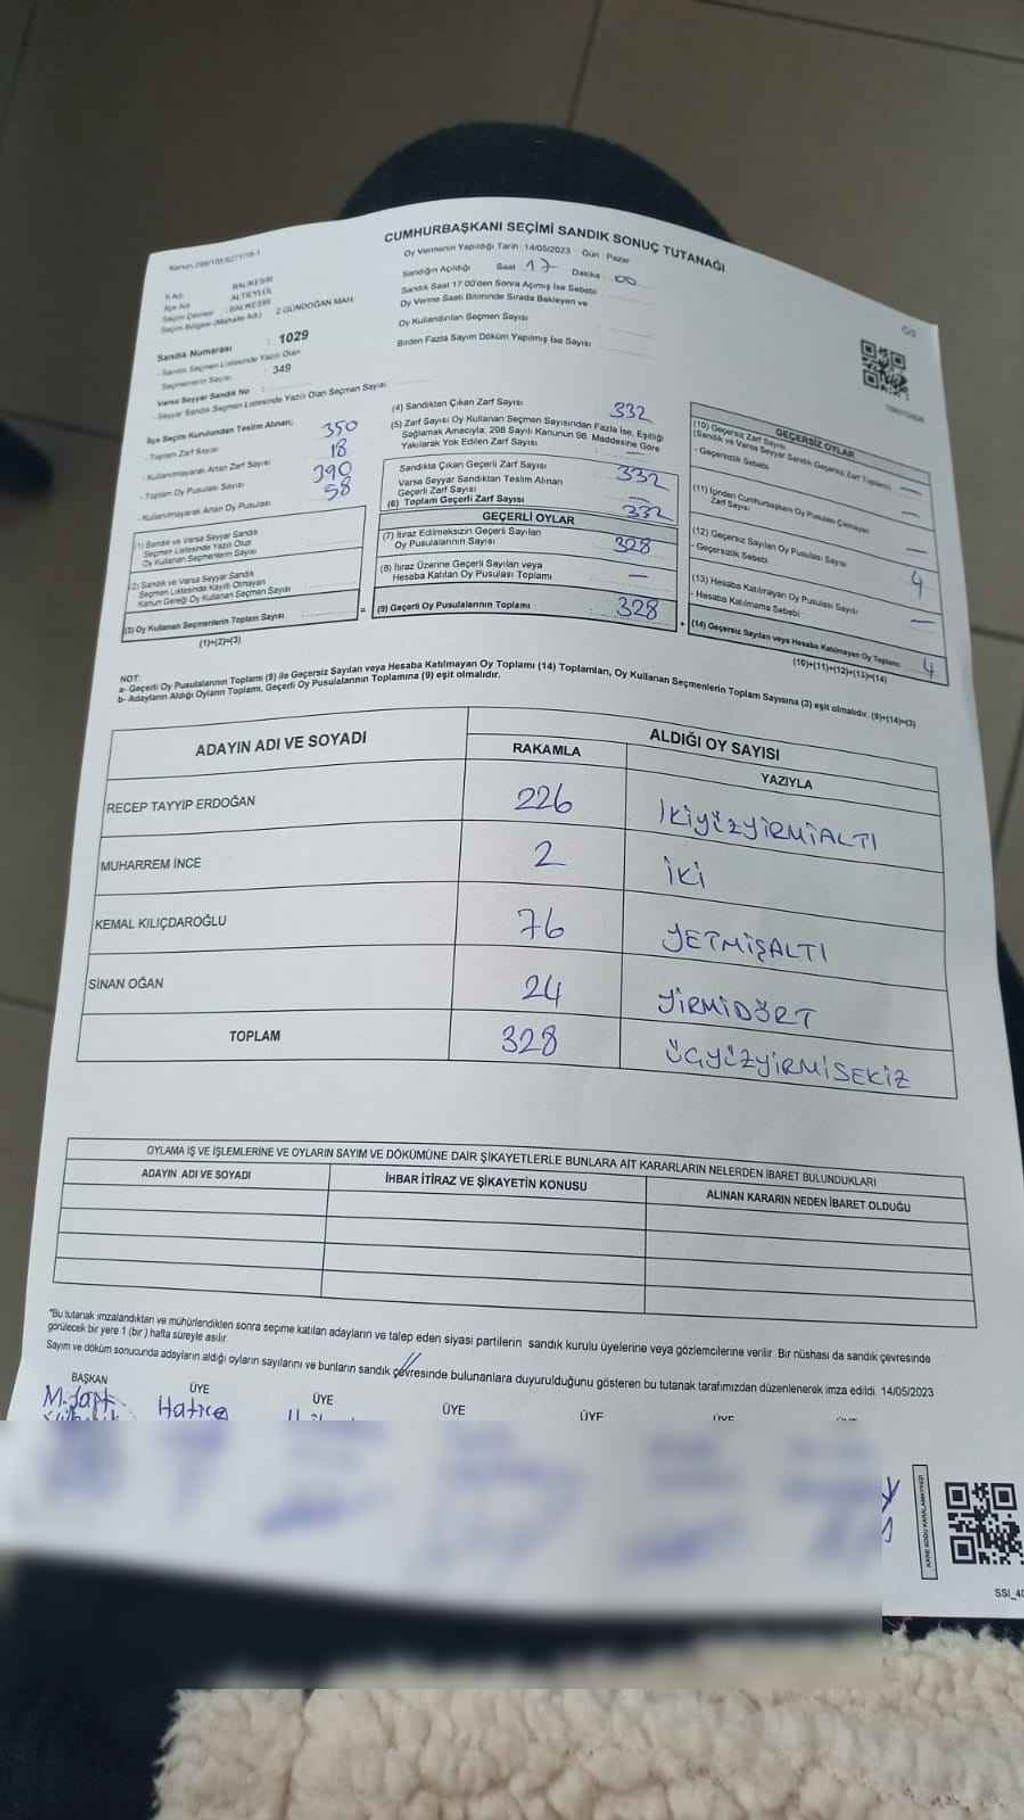 CUMHURBAŞKANI SEÇİMİ SANDIK SONUÇ TUTANAĞI
Oy Vermenin Yapıldığı Tarih : 14/05/2023 Gün : Pazar
Sandığın Açıldığı Saat 17 Dakika 00
Sandık Saat 17:00'den Sonra Açılmış İse Sebebi
Oy Verme Saati Bitiminde Sırada Bekleyen ve
Oy Kullandırılan Seçmen Sayısı
Birden Fazla Sayım Döküm Yapılmış İse Sayısı
BALIKESİR
ALTIEYLÜL
BALIKESİR
Seçim Bölgesi (Mahalle Adı) : 2 GÜNDOĞAN MAH.
Sandık Numarası : 1029
- Sandık Seçmen Listesinde Yazılı Olan
Seçmenlerin Sayısı 349
Varsa Seyyar Sandık No :
- Seyyar Sandık Seçmen Listesinde Yazılı Olan Seçmen Sayısı
İlçe Seçim Kurulundan Teslim Alınan;
- Toplam Zarf Sayısı 350
- Kullanılmayarak Artan Zarf Sayısı 18
- Toplam Oy Pusulası Sayısı 390
- Kullanılmayarak Artan Oy Pusulası 58
(1) Sandık ve Varsa Seyyar Sandık
Seçmen Listesinde Yazılı Olup
Oy Kullanan Seçmenlerin Sayısı
(2) Sandık ve Varsa Seyyar Sandık
Seçmen Listesinde Kayıtlı Olmayan
Kanun Gereği Oy Kullanan Seçmen Sayısı
(3) Oy Kullanan Seçmenlerin Toplam Sayısı
(1)+(2)=(3)
(4) Sandıktan Çıkan Zarf Sayısı 332
(5) Zarf Sayısı Oy Kullanan Seçmen Sayısından Fazla İse, Eşitliği
Sağlamak Amacıyla, 298 Sayılı Kanunun 98. Maddesine Göre
Yakılarak Yok Edilen Zarf Sayısı —
Sandıkta Çıkan Geçerli Zarf Sayısı 332
Varsa Seyyar Sandıktan Teslim Alınan
Geçerli Zarf Sayısı —
(6) Toplam Geçerli Zarf Sayısı 332
GEÇERLİ OYLAR
(7) İtiraz Edilmeksizin Geçerli Sayılan
Oy Pusulalarının Sayısı 328
(8) İtiraz Üzerine Geçerli Sayılan veya
Hesaba Katılan Oy Pusulası Toplamı —
= (9) Geçerli Oy Pusulalarının Toplamı 328
GEÇERSİZ OYLAR
(10) Geçersiz Zarf Sayısı
(Sandık ve Varsa Seyyar Sandık Geçersiz Zarf Toplamı) —
- Geçersizlik Sebebi —
(11) İçinden Cumhurbaşkanı Oy Pusulası Çıkmayan
Zarf Sayısı —
(12) Geçersiz Sayılan Oy Pusulası Sayısı 4
- Geçersizlik Sebebi
(13) Hesaba Katılmayan Oy Pusulası Sayısı —
- Hesaba Katılmama Sebebi
+ (14) Geçersiz Sayılan veya Hesaba Katılmayan Oy Toplamı 4
(10)+(11)+(12)+(13)=(14)
NOT:
a- Geçerli Oy Pusulalarının Toplamı (9) ile Geçersiz Sayılan veya Hesaba Katılmayan Oy Toplamı (14) Toplamları, Oy Kullanan Seçmenlerin Toplam Sayısına (3) eşit olmalıdır. (9)+(14)=(3)
b- Adayların Aldığı Oyların Toplamı, Geçerli Oy Pusulalarının Toplamına (9) eşit olmalıdır.
ADAYIN ADI VE SOYADI ALDIĞI OY SAYISI
RAKAMLA YAZIYLA
RECEP TAYYİP ERDOĞAN 226 İKİYÜZYİRMİALTI
MUHARREM İNCE 2 İKİ
KEMAL KILIÇDAROĞLU 76 YETMİŞALTI
SİNAN OĞAN 24 YİRMİDÖRT
TOPLAM 328 ÜÇYÜZYİRMİSEKİZ
OYLAMA İŞ VE İŞLEMLERİNE VE OYLARIN SAYIM VE DÖKÜMÜNE DAİR ŞİKAYETLERLE BUNLARA AİT KARARLARIN NELERDEN İBARET BULUNDUKLARI
ADAYIN ADI VE SOYADI İHBAR İTİRAZ VE ŞİKAYETİN KONUSU ALINAN KARARIN NEDEN İBARET OLDUĞU
"Bu tutanak imzalandıktan ve mühürlendikten sonra seçime katılan adayların ve talep eden siyasi partilerin sandık kurulu üyelerine veya gözlemcilerine verilir. Bir nüshası da sandık çevresinde
görülecek bir yere 1 (bir) hafta süreyle asılır.
Sayım ve döküm sonucunda adayların aldığı oyların sayılarını ve bunların sandık çevresinde bulunanlara duyurulduğunu gösteren bu tutanak tarafımızdan düzenlenerek imza edildi. 14/05/2023
BAŞKAN ÜYE ÜYE ÜYE ÜYE ÜYE
Hatice